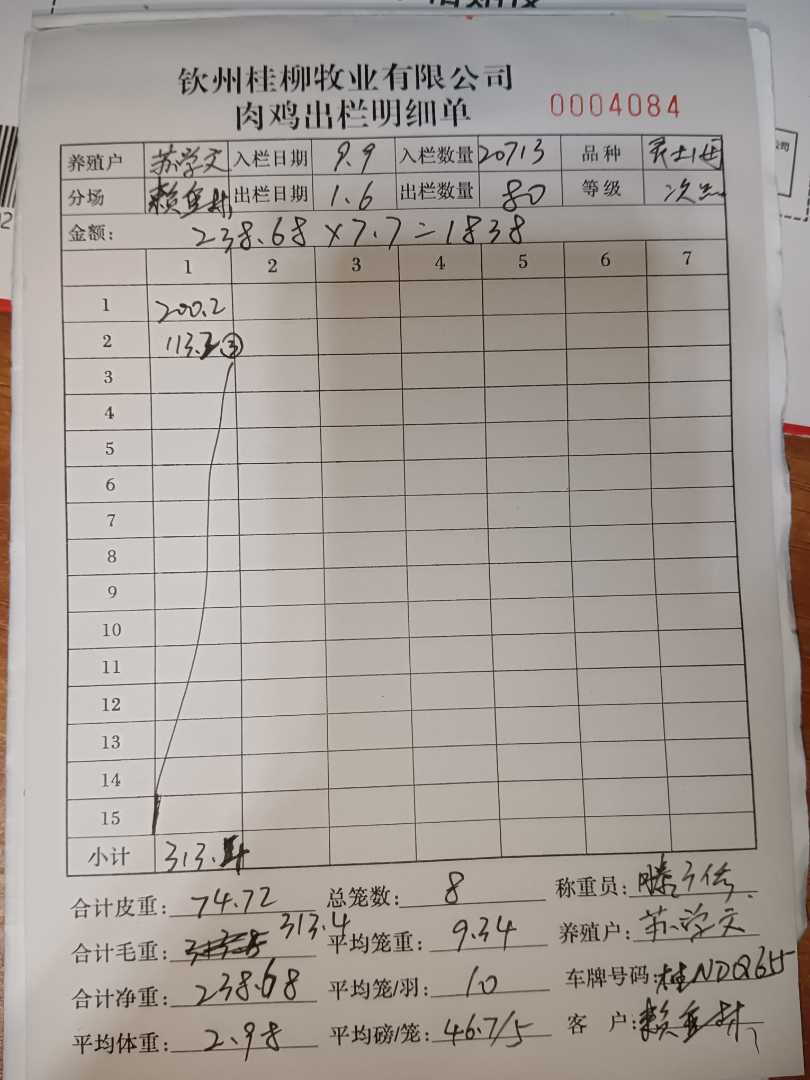 钦州桂柳牧业有限公司
肉鸡出栏明细单 0004084
养殖户 苏学文 入栏日期 9.9 入栏数量 20713 品种
分场 赖金 出栏日期 1.6 出栏数量 80 等级 次
金额: 238.68×7.7=1838
1 2 3 4 5 6 7
1 200.2
2 113.2 ③
3
4
5
6
7
8
9
10
11
12
13
14
15
小计 313.4
合计皮重: 74.72 总笼数: 8 称重员: 滕
合计毛重: 313.4 平均笼重: 9.34 养殖户: 苏学文
合计净重: 238.68 平均笼/羽: 10 车牌号码: 桂NDQ655
平均体重: 2.98 平均磅/笼: 46.7/5 客 户: 赖金